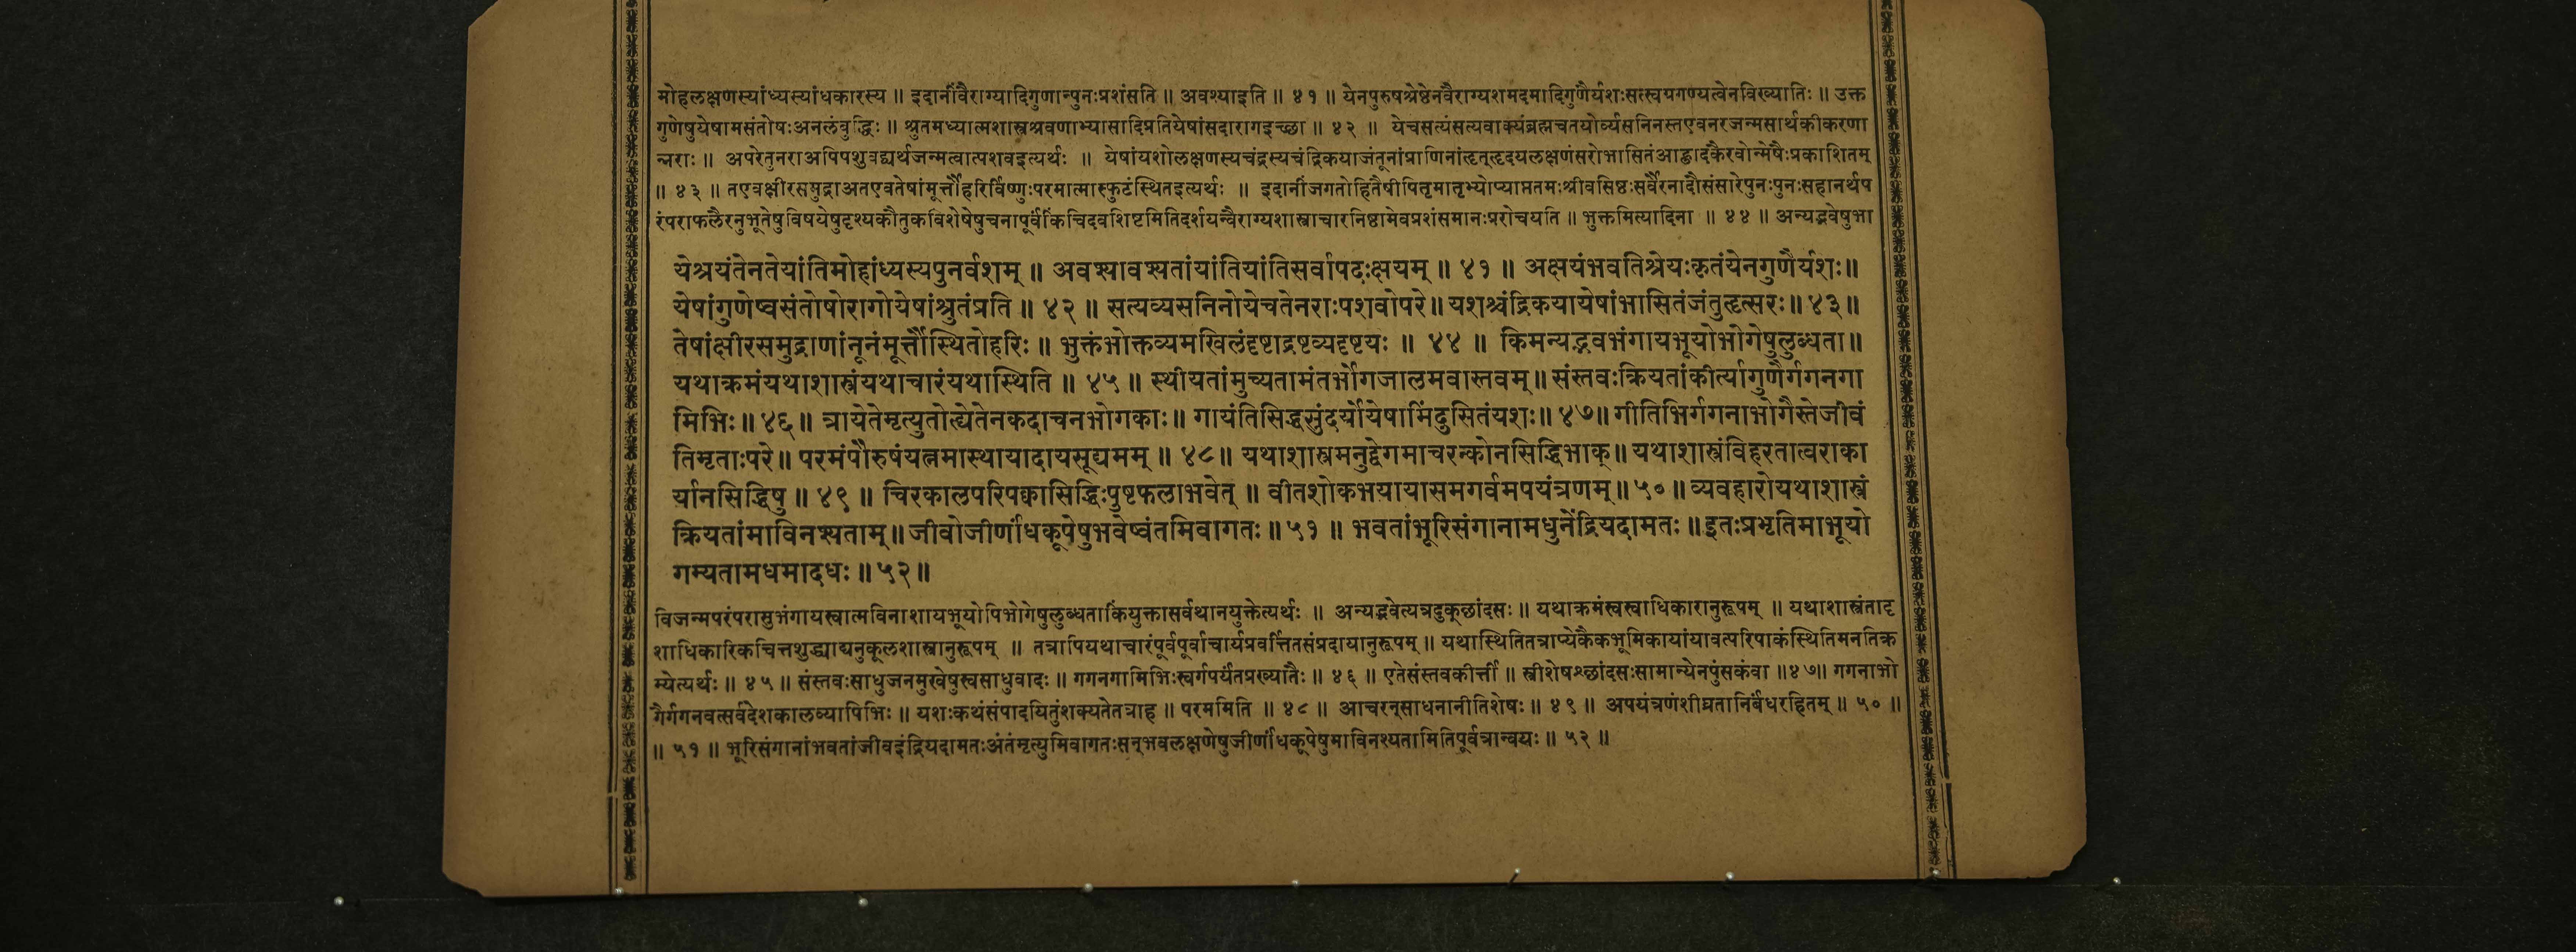 मोहलक्षणस्यांध्यस्यांधकारस्य ॥ इदानींवैराग्यादिगुणान्पुनःप्रशंसति ॥ अवश्याइति ॥ ४१ ॥ येनपुरुषश्रेष्ठेनवैराग्यशमदमादिगुणैर्यशःसत्स्वग्रगण्यत्वेनविख्यातिः ॥ उक्त
गुणेषुयेषामसंतोषःअनलंबुद्धिः ॥ श्रुतमध्यात्मशास्त्रश्रवणाभ्यासादिप्रतियेषांसदारागइच्छा ॥ ४२ ॥ येचसत्यंसत्यवाक्यंब्रह्मचतयोर्व्यसनिनस्तएवनरजन्मसार्थकीकरणा
न्नराः ॥ अपरेतुनराअपिपशुवद्व्यर्थजन्मत्वात्पशवइत्यर्थः ॥ येषांयशोलक्षणस्यचंद्रस्यचंद्रिकयाजंतूनांप्राणिनांहृत्हृदयलक्षणंसरोभासितंआह्लादकैरवोन्मेषैःप्रकाशितम्
॥ ४३ ॥ तएवक्षीरसमुद्राअतएवतेषांमूर्त्तौहरिर्विष्णुःपरमात्मास्फुटंस्थितइत्यर्थः ॥ इदानींजगतोहितैषीपितृमातृभ्योप्याप्ततमःश्रीवसिष्ठःसर्वैरनादौसंसारेपुनःपुनःसहानर्थप
रंपराफलैरनुभूतेषुविषयेषुदृश्यकौतुकविशेषेषुचनापूर्वंकिंचिदवशिष्टमितिदर्शयन्वैराग्यशास्त्राचारनिष्ठामेवप्रशंसमानःप्ररोचयति ॥ भुक्तमित्यादिना ॥ ४४ ॥ अन्यद्भवेषुभा
येश्रयंतेनतेयांतिमोहांध्यस्यपुनर्वशम् ॥ अवश्यावश्यतांयांतियांतिसर्वापदःक्षयम् ॥ ४१ ॥ अक्षयंभवतिश्रेयःकृतंयेनगुणैर्यशः॥
येषांगुणेष्वसंतोषोरागोयेषांश्रुतंप्रति ॥ ४२ ॥ सत्यव्यसनिनोयेचतेनराःपशवोपरे॥ यशश्चंद्रिकयायेषांभासितंजंतुहृत्सरः॥ ४३॥
तेषांक्षीरसमुद्राणांनूनंमूर्त्तौस्थितोहरिः ॥ भुक्तंभोक्तव्यमखिलंदृष्टाद्रष्टव्यदृष्टयः ॥ ४४ ॥ किमन्यद्भवभंगायभूयोभोगेषुलुब्धता॥
यथाक्रमंयथाशास्त्रंयथाचारंयथास्थिति ॥ ४५ ॥ स्थीयतांमुच्यतामंतर्भोगजालमवास्तवम्॥ संस्तवःक्रियतांकीर्त्यागुणैर्गगनगा
मिभिः॥ ४६॥ त्रायेतेमृत्युतोत्द्येतेनकदाचनभोगकाः॥ गायंतिसिद्धसुंदर्योयेषामिंदुसितंयशः॥ ४७॥ गीतिभिर्गगनाभोगैस्तेजीवं
तिमृताःपरे॥ परमंपौरुषंयत्नमास्थायादायसूद्यमम् ॥ ४८॥ यथाशास्त्रमनुद्वेगमाचरन्कोनसिद्धिभाक्॥ यथाशास्त्रंविहरतात्वराका
र्यानसिद्धिषु ॥ ४९ ॥ चिरकालपरिपक्वासिद्धिःपुष्टफलाभवेत् ॥ वीतशोकभयायासमगर्वमपयंत्रणम्॥ ५०॥ व्यवहारोयथाशास्त्रं
क्रियतांमाविनश्यताम्॥ जीवोजीर्णांधकूपेषुभवेष्वंतमिवागतः॥ ५१ ॥ भवतांभूरिसंगानामधुनेंद्रियदामतः ॥ इतःप्रभृतिमाभूयो
गम्यतामधमादधः॥ ५२॥
विजन्मपरंपरासुभंगायस्वात्मविनाशायभूयोपिभोगेषुलुब्धताकिंयुक्तासर्वथानयुक्तेत्यर्थः ॥ अन्यद्भवेत्यत्रदुकूछांदसः ॥ यथाक्रमंस्वस्वाधिकारानुरूपम् ॥ यथाशास्त्रंतादृ
शाधिकारिकचित्तशुद्ध्याद्यनुकूलशास्त्रानुरूपम् ॥ तत्रापियथाचारंपूर्वपूर्वाचार्यप्रवर्त्तितसंप्रदायानुरूपम् ॥ यथास्थितितत्राप्येकैकभूमिकायांयावत्परिपाकंस्थितिमनतिक्र
म्येत्यर्थः ॥ ४५ ॥ संस्तवःसाधुजनमुखेषुस्वसाधुवादः ॥ गगनगामिभिःस्वर्गपर्यंतप्रख्यातैः ॥ ४६ ॥ एतेसंस्तवकीर्त्ती ॥ स्त्रीशेषश्छांदसःसामान्येनपुंसकंवा ॥४७॥ गगनाभो
गैर्गगनवत्सर्वदेशकालव्यापिभिः ॥ यशःकथंसंपादयितुंशक्यतेतत्राह ॥ परममिति ॥ ४८ ॥ आचरन्साधनानीतिशेषः ॥ ४९ ॥ अपयंत्रणंशीघ्रतानिर्बंधरहितम् ॥ ५० ॥
॥ ५१ ॥ भूरिसंगानांभवतांजीवइंद्रियदामतःअंतंमृत्युमिवागतःसन्भवलक्षणेषुजीर्णांधकूपेषुमाविनश्यतामितिपूर्वत्रान्वयः ॥ ५२ ॥